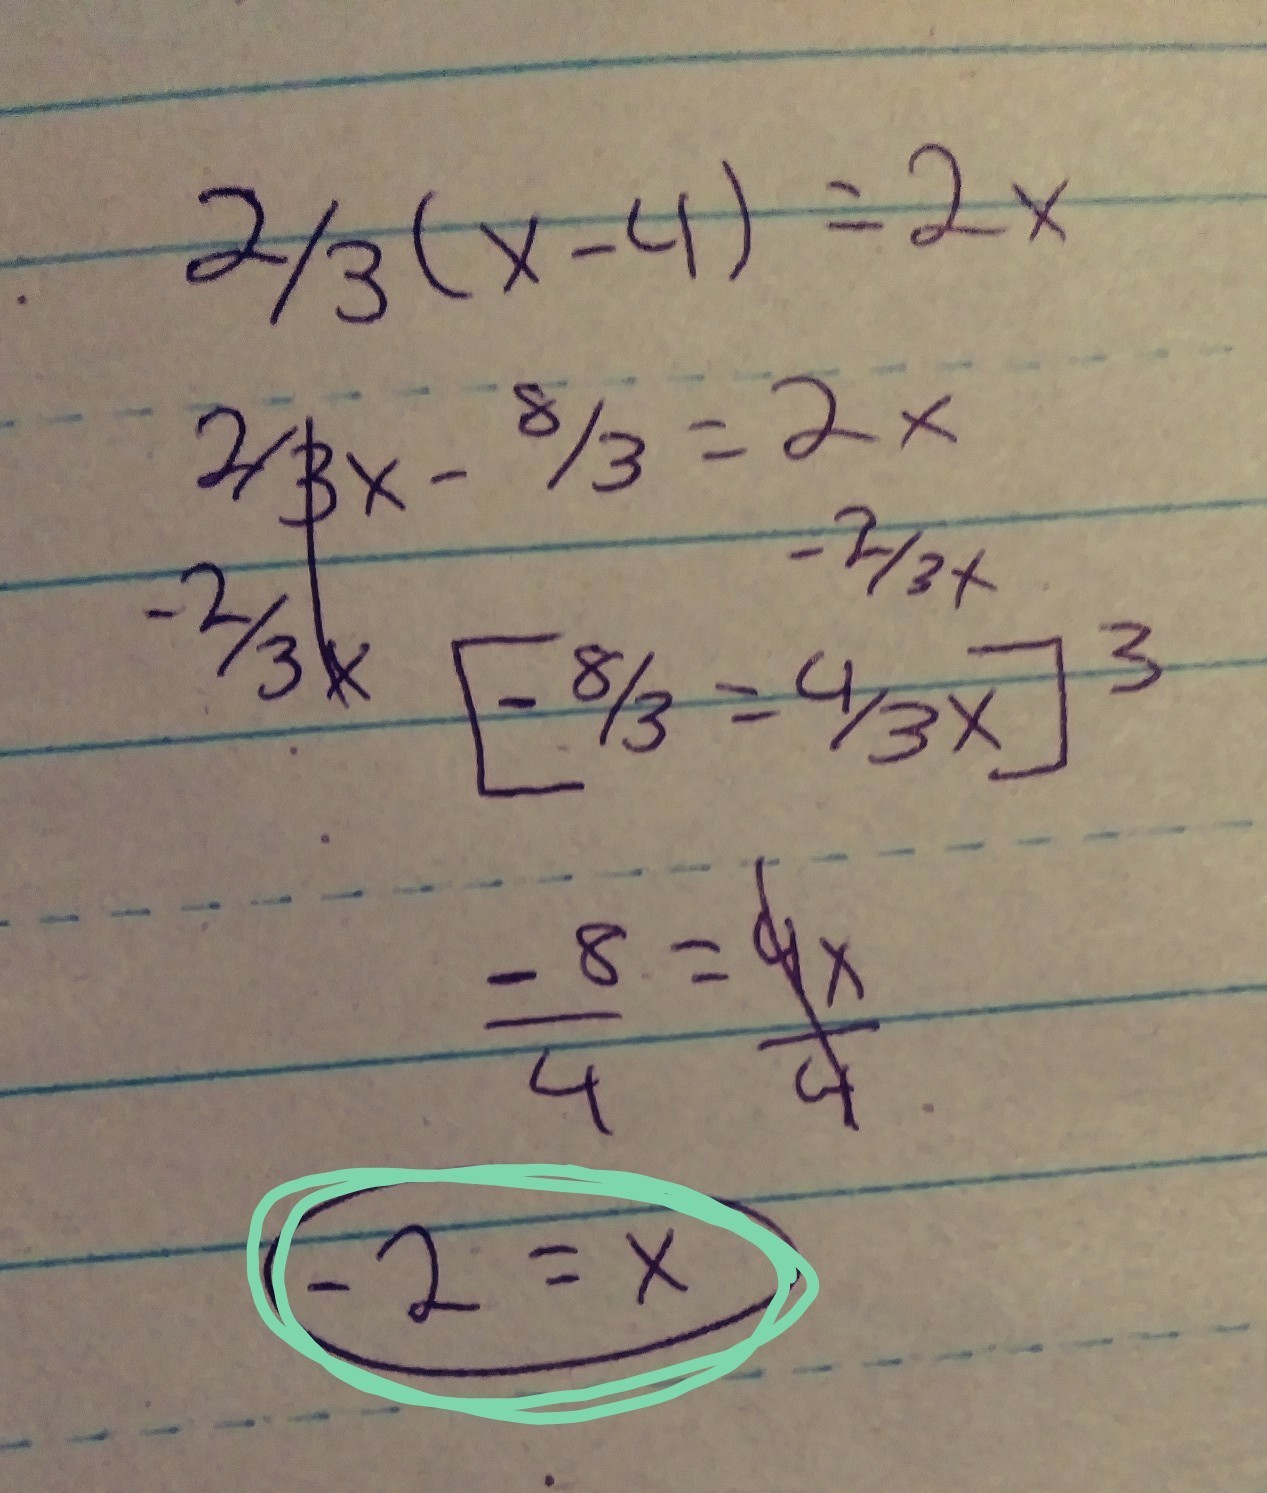 2/3(x-4) = 2x
2/3x - 8/3 = 2x
-2/3x -2/3x
[-8/3 = 4/3x]3
-8 = 4x
4 4
-2 = x